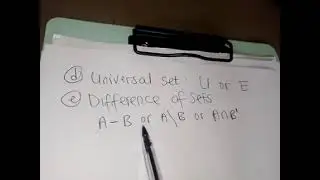 (d) Universal set: U or E
(e) Difference of sets
A - B or A\B or A∩B'